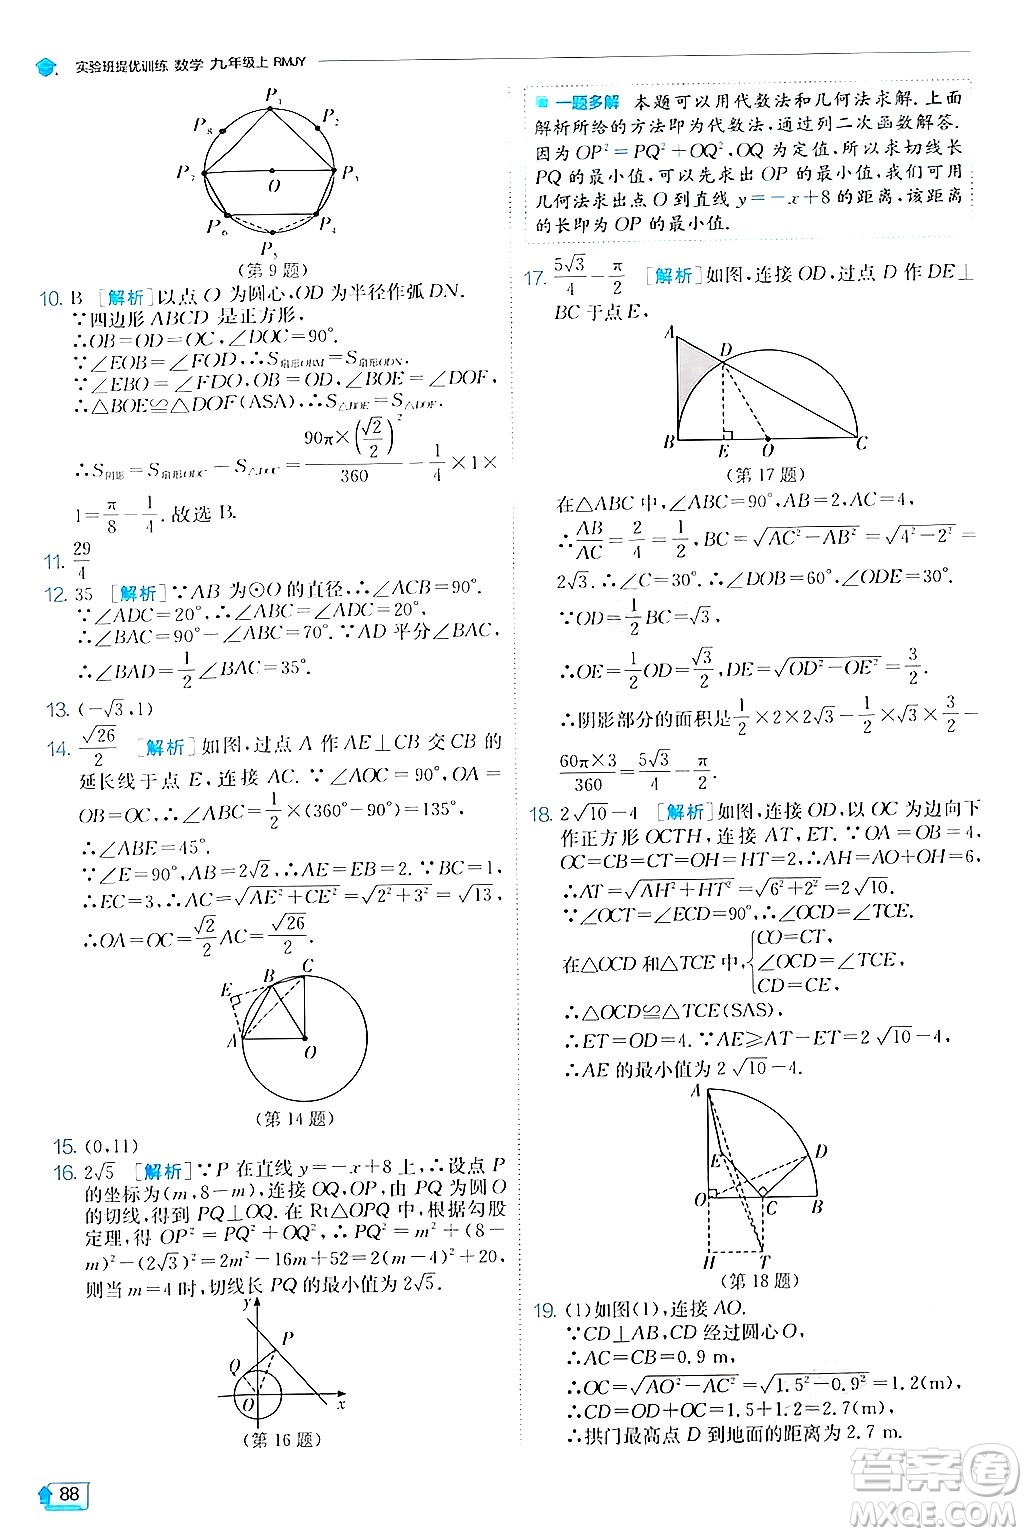 实验班提优训练 数学 九年级上 RMJY
P₁
P₈ P₂
P₇ O P₃
P₆ P₄
P₅
(第 9 题)
10. B [解析]以点 O 为圆心,OD 为半径作弧 DN.
∵四边形 ABCD 是正方形,
∴OB=OD=OC,∠DOC=90°.
∵∠EOB=∠FOD,∴S扇形OBM=S扇形ODN.
∵∠EBO=∠FDO,OB=OD,∠BOE=∠DOF,
∴△BOE≌△DOF(ASA),∴S△BOE=S△DOF.
∴S阴影=S扇形DOC−S△DOC=90π×(√2/2)²/360−1/4×1×
1=π/8−1/4.故选 B.
11. 29/4
12. 35 [解析]∵AB 为⊙O 的直径,∴∠ACB=90°.
∵∠ADC=20°,∴∠ABC=∠ADC=20°.
∴∠BAC=90°−∠ABC=70°.∵AD 平分∠BAC,
∴∠BAD=1/2∠BAC=35°.
13. (−√3,1)
14. √26/2 [解析]如图,过点 A 作 AE⊥CB 交 CB 的
延长线于点 E,连接 AC.∵∠AOC=90°,OA=
OB=OC,∴∠ABC=1/2×(360°−90°)=135°.
∴∠ABE=45°.
∵∠E=90°,AB=2√2,∴AE=EB=2.∵BC=1,
∴EC=3,∴AC=√(AE²+CE²)=√(2²+3²)=√13,
∴OA=OC=√2/2AC=√26/2.
C
B
E
A O
(第 14 题)
15. (0,11)
16. 2√5 [解析]∵P 在直线 y=−x+8 上,∴设点 P
的坐标为(m,8−m),连接 OQ,OP,由 PQ 为圆 O
的切线,得到 PQ⊥OQ.在 Rt△OPQ 中,根据勾股
定理,得 OP²=PQ²+OQ²,∴PQ²=m²+(8−
m)²−(2√3)²=2m²−16m+52=2(m−4)²+20,
则当 m=4时,切线长 PQ 的最小值为 2√5.
y
P
Q
O x
(第 16 题)
88
一题多解 本题可以用代数法和几何法求解.上面
解析所给的方法即为代数法,通过列二次函数解答.
因为 OP²=PQ²+OQ²,OQ 为定值,所以求切线长
PQ 的最小值,可以先求出 OP 的最小值,我们可用
几何法求出点 O 到直线 y=−x+8 的距离,该距离
的长即为 OP 的最小值.
17. 5√3/4−π/2 [解析]如图,连接 OD,过点 D 作 DE⊥
BC 于点 E,
A
D
B E O C
(第 17 题)
在△ABC 中,∠ABC=90°,AB=2,AC=4,
∴AB/AC=2/4=1/2,BC=√(AC²−AB²)=√(4²−2²)=
2√3.∴∠C=30°,∴∠DOB=60°,∠ODE=30°.
∵OD=1/2BC=√3,
∴OE=1/2OD=√3/2,DE=√(OD²−OE²)=3/2.
∴阴影部分的面积是1/2×2×2√3−1/2×√3×3/2−
60π×3/360=5√3/4−π/2.
18. 2√10−4 [解析]如图,连接 OD,以 OC 为边向下
作正方形 OCTH,连接 AT,ET.∵OA=OB=4,
OC=CB=CT=OH=HT=2,∴AH=AO+OH=6,
∴AT=√(AH²+HT²)=√(6²+2²)=2√10.
∵∠OCT=∠ECD=90°,∴∠OCD=∠TCE.
在△OCD 和△TCE 中,{CO=CT,
∠OCD=∠TCE,
CD=CE,
∴△OCD≌△TCE(SAS),
∴ET=OD=4.∵AE≥AT−ET=2√10−4,
∴AE 的最小值为 2√10−4.
A
E D
O C B
H T
(第 18 题)
19. (1)如图(1),连接 AO.
∵CD⊥AB,CD 经过圆心 O,
∴AC=CB=0.9 m,
∴OC=√(AO²−AC²)=√(1.5²−0.9²)=1.2(m),
∴CD=OD+OC=1.5+1.2=2.7(m),
∴拱门最高点 D 到地面的距离为 2.7 m.
答案圈
MXQE.COM